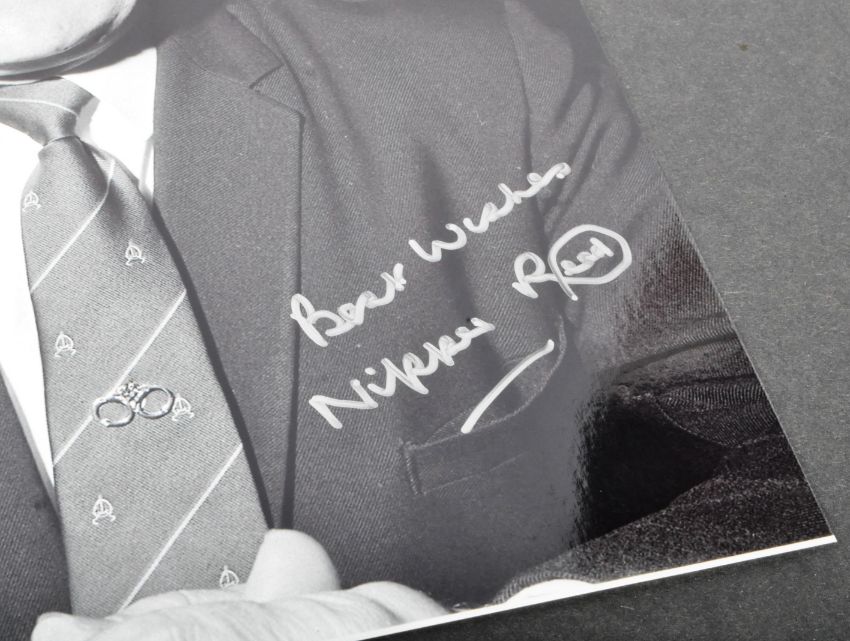 Best Wishes
Nipper Read